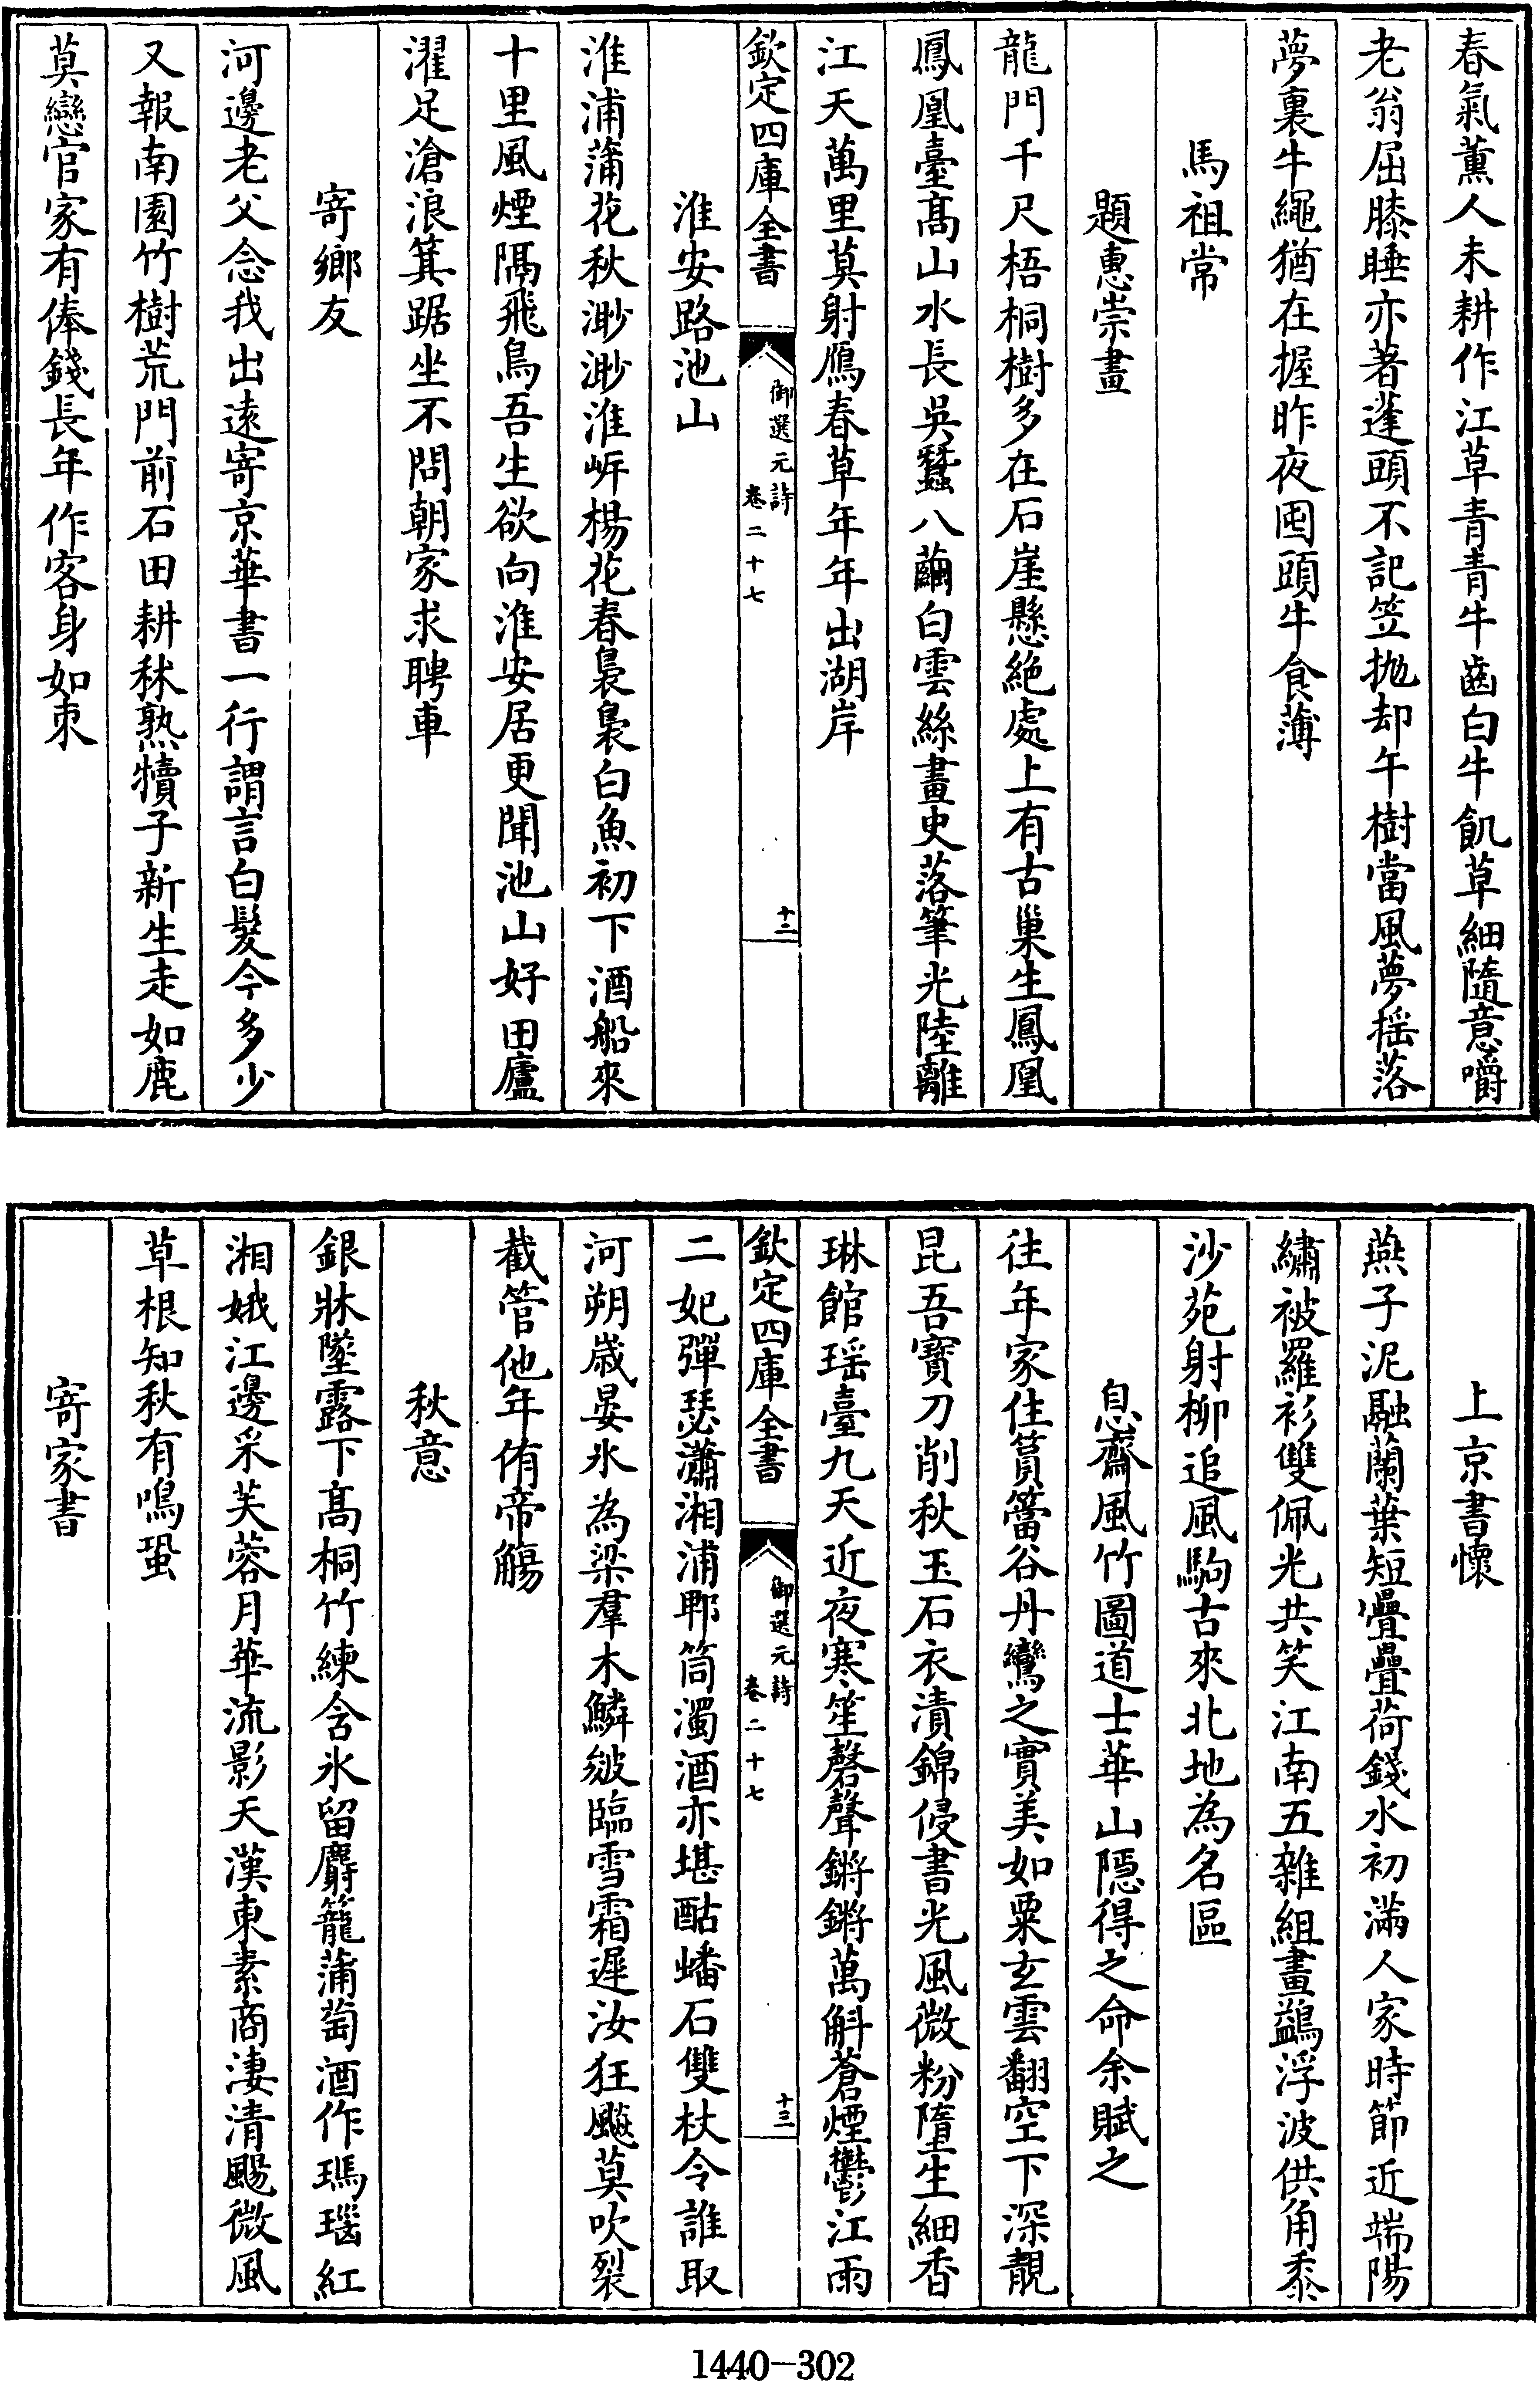 春氣薰人未耕作江草青青牛齒白牛飢草細隨意嚼
老翁屈膝睡亦著蓬頭不記笠抛却午樹當風夢揺落
夢裏牛繩猶在握昨夜囤頭牛食薄
馬祖常
題惠崇畫
龍門千尺梧桐樹多在石崖懸絶處上有古巢生鳳凰
鳳凰臺髙山水長吳蠶八繭白雲絲畫史落筆光陸離
江天萬里莫射鴈春草年年出湖岸
欽定四庫全書
御選元詩
卷二十七
十二
淮安路池山
淮浦蒲花秋渺渺淮㟁楊花春裊裊白魚初下酒船來
十里風煙隔飛鳥吾生欲向淮安居更聞池山好田廬
濯足滄浪箕踞坐不問朝家求聘車
寄鄉友
河邊老父念我出逺寄京華書一行謂言白髮今多少
又報南園竹樹荒門前石田耕秫熟犢子新生走如鹿
莫戀官家有俸錢長年作客身如束
上京書懷
燕子泥融蘭葉短疊疊荷錢水初滿人家時節近端陽
繡被羅衫雙佩光共笑江南五雜組畫鷁浮波供角黍
沙苑射柳追風駒古來北地為名區
息齋風竹圖道士華山隠得之命余賦之
往年家住篔簹谷丹鸞之實美如粟玄雲翻空下深靚
昆吾寶刀削秋玉石衣漬錦侵書光風微粉墮生細香
琳館瑶臺九天近夜寒笙磬聲鏘鏘萬斛蒼煙鬱江雨
欽定四庫全書
御選元詩
卷二十七
十三
二妃彈瑟瀟湘浦郫筒濁酒亦堪酤蟠石雙杖令誰取
河朔嵗晏氷為梁羣木鱗皴臨雪霜遲汝狂飈莫吹裂
截管他年侑帝觴
秋意
銀牀墜露下髙桐竹練含氷留麝籠蒲萄酒作瑪瑙紅
湘娥江邊采芙蓉月華流影天漢東素商淒清颺微風
草根知秋有鳴蛩
寄家書
1440-302